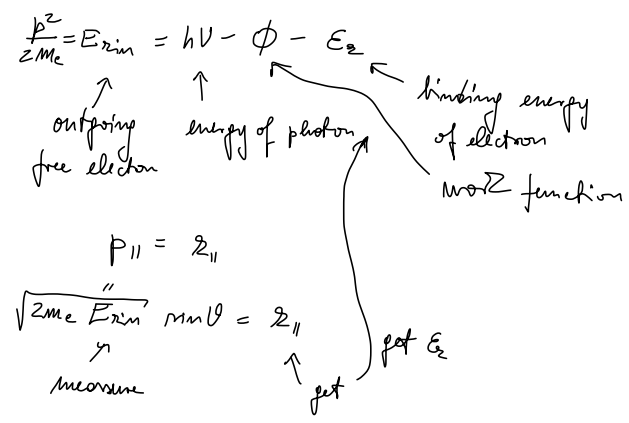 p²/2mₑ = E_kin = hν − ϕ − ε_k
outgoing
free electron
energy of photon
binding energy
of electron
work function
p_∥ = k_∥
"
√(2mₑ E_kin) sin ϑ = k_∥
measure
get
get ε_k